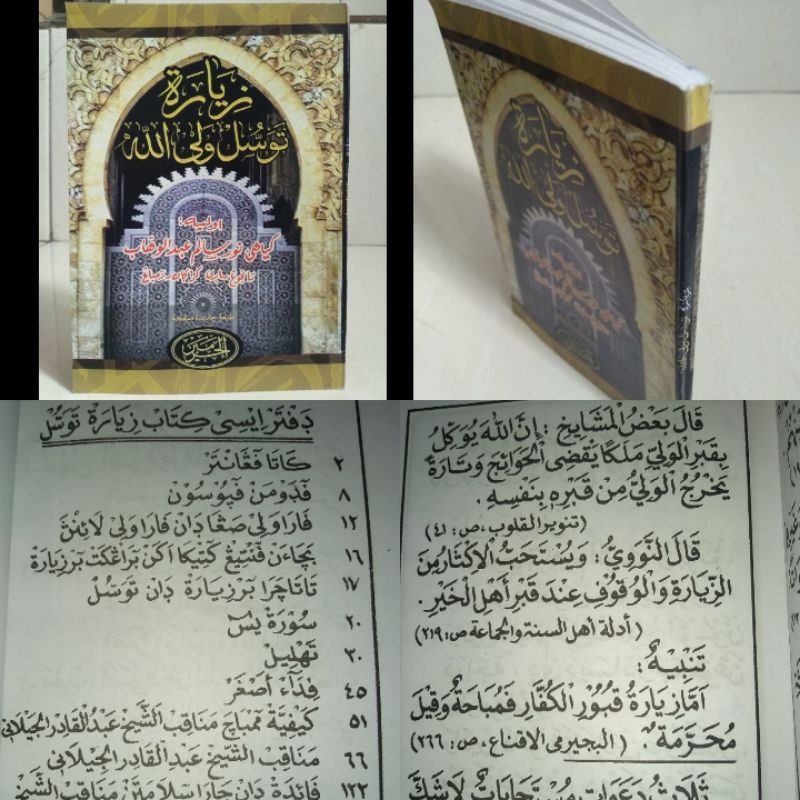 زيارة
توسل ولى الله
اوليه:
كياهي نور سالم عبد الوهاب
الخير
زيارة
توسل ولى الله
دَفْتَر اِيْسِي كِتَابْ زِيَارَة تَوَسُّل
كَاتَا فَڠَانْتَر ٢
فَدَوْمَن فَڽُوسُوْن ٨
فَارَا وَلِي صَڠَا دَان فَارَا وَلِي لَائِنْڽَ ١٢
بَچَاءَن فَنْتِيْڠ كَتِيْكَا اَكَن بَرَاڠْكَت بَرْزِيَارَة ١٦
تَاتَاچَرَا بَرْزِيَارَة دَان تَوَسُّل ١٧
سُوْرَة يٰسٓ ٢٠
تَهْلِيْل ٣٠
فِدَآء اَصْغَرْ ٤٥
كَيْفِيَّة مَمْبَاچ مَنَاقِب الشَّيْخ عَبْدُ الْقَادِر الْجِيْلَانِي ٥١
مَنَاقِب الشَّيْخ عَبْدِ الْقَادِر الْجِيْلَانِي ٦٦
فَائِدَة دَان چَارَا سْلَامَتَن مَنَاقِب الشَّيْخ ١٢٢
قَالَ بَعْضُ الْمَشَايِخِ : إِنَّ اللهَ يُوَكِّلُ
بِقَبْرِ الْوَلِيِّ مَلَكًا يَقْضِى الْحَوَائِجَ وَتَارَةً
يَخْرُجُ الْوَلِيُّ مِنْ قَبْرِهِ بِنَفْسِهِ .
(تنوير القلوب ، ص : ٤١)
قَالَ النَّوَوِيُّ : وَيُسْتَحَبُّ الْاِكْثَارُ مِنَ
الزِّيَارَةِ وَالْوُقُوْفُ عِنْدَ قَبْرِ اَهْلِ الْخَيْرِ .
(أدلة أهل السنة والجماعة ص : ٢١٩)
تَنْبِيْهٌ :
اَمَّا زِيَارَةُ قُبُوْرِ الْكُفَّارِ فَمُبَاحَةٌ وَقِيْلَ
مُحَرَّمَةٌ . (البجيرمى الاقناع ، ص : ٢٦٦)
ثَلَاثُ دَعَوَاتٍ مُسْتَجَابَاتٌ لَا شَكَّ